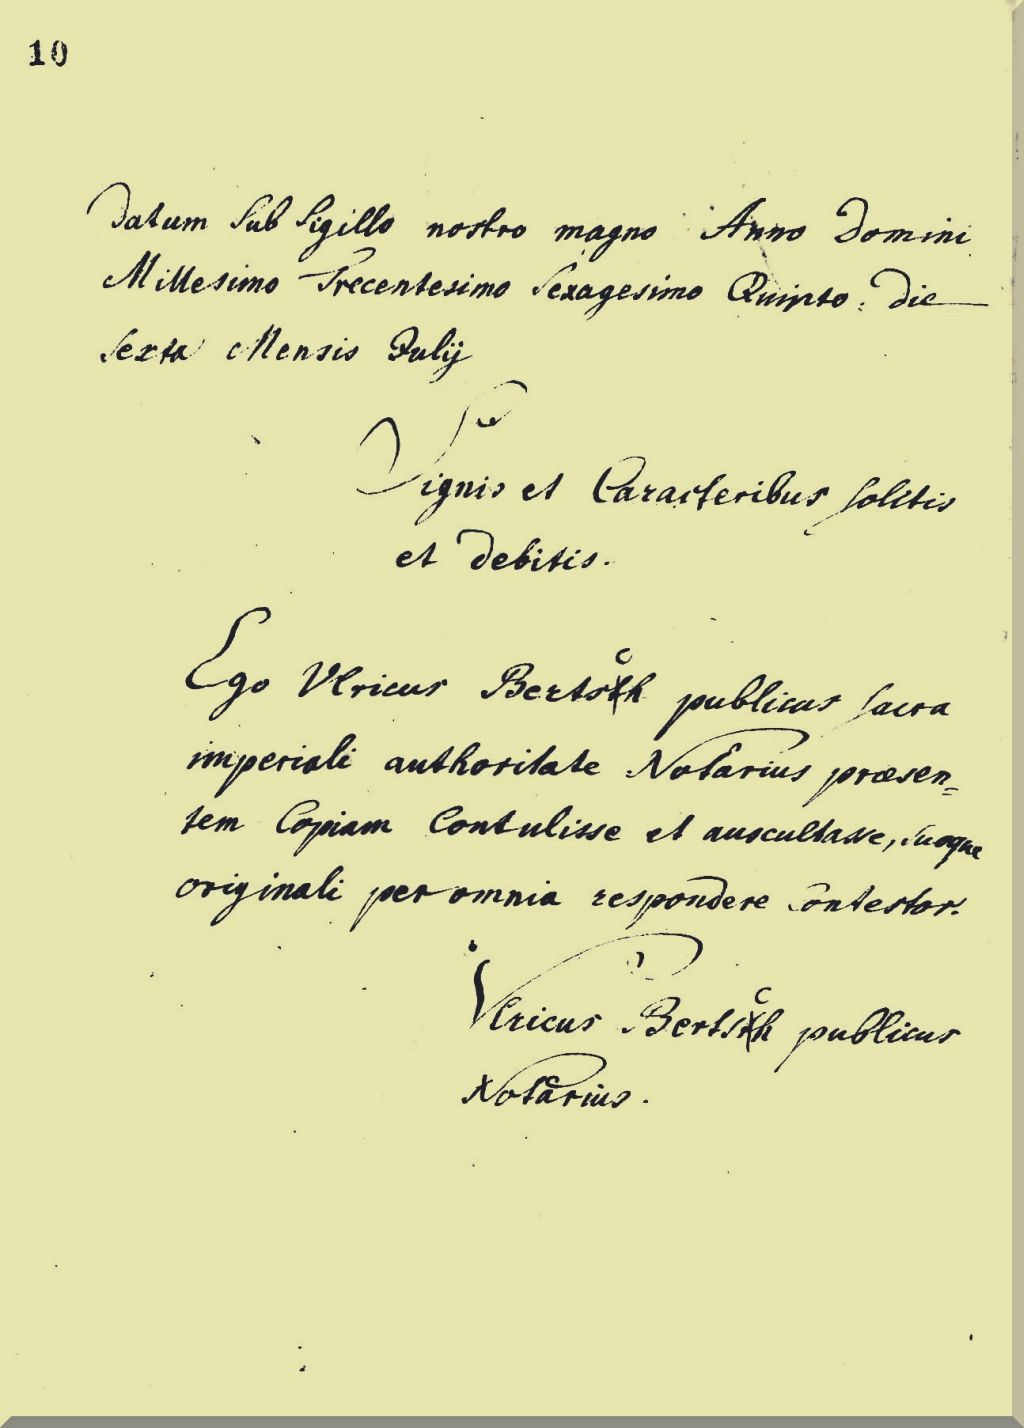 10
Datum Sub Sigillo nostro magno Anno Domini
Millesimo Trecentesimo Sexagesimo Quinto: die
Sexta Mensis Julij
Signis et Caracteribus solitis
et debitis.
Ego Vlricus Bertsch publicus sacra
imperiali authoritate Notarius præsen=
tem Copiam Contulisse et auscultasse, suoque
originali per omnia respondere Contestor.
Vlricus Bertsch publicus
Notarius.